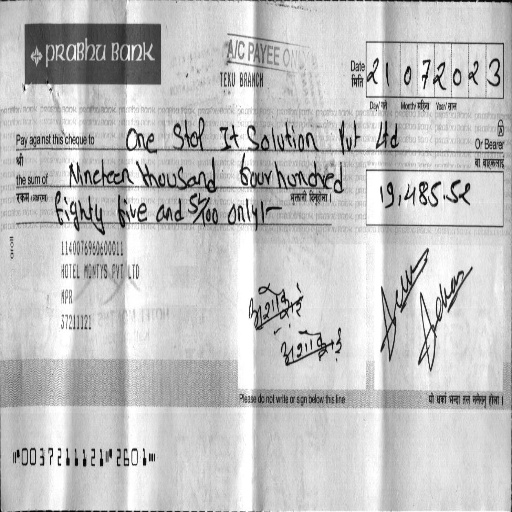 PRABHU BANK
A/C PAYEE ONLY
TEKU BRANCH
Date
मिति
21072023
Day/ गते Month/ महिना Year/ साल
Pay against this cheque to One Stop It Solution Pvt Ltd Or Bearer
श्री वा वाहकलाई
the sum of Nineteen thousand four hundred
रकम (अक्षरमा) भुक्तानी दिनुहोला ।
Eighty five and 52/100 only/-
19,485.52
1140076960600011
HOTEL MONTYS PVT LTD
NPR
37211121
Please do not write or sign below this line यो धर्का भन्दा तल नलेख्नु होला ।
⑈0037211121⑈2601⑉